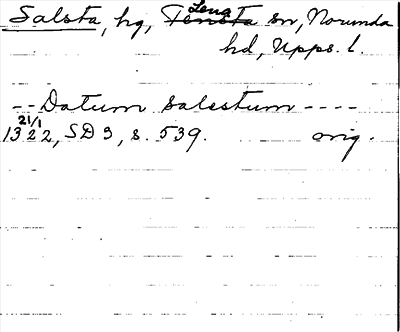 Salsta, hg, Tensta Lena sn, Norunda
hd, Upps. l.
-- Datum salestum ----
1322, 21/1 SD 3, s. 539. orig.